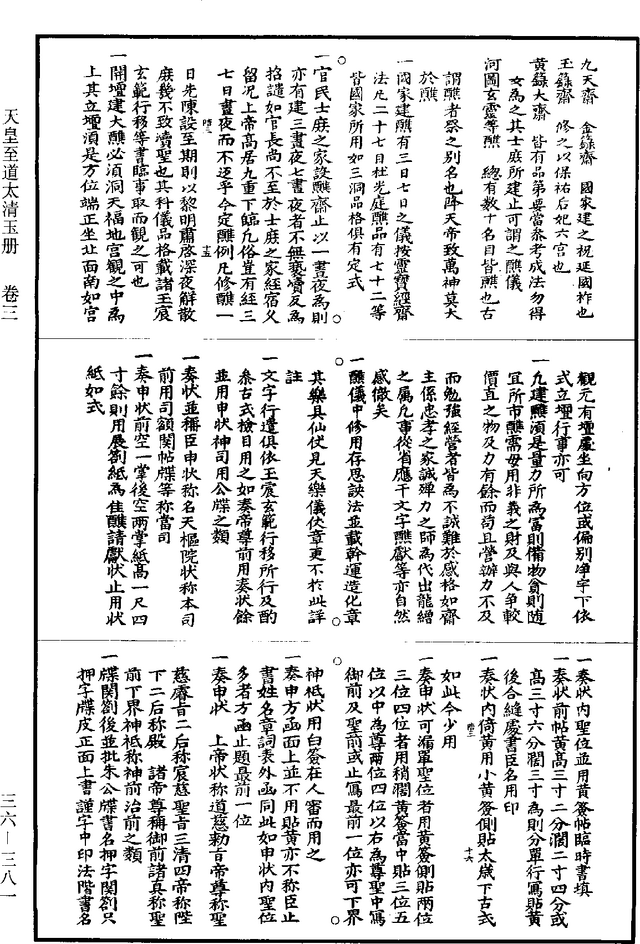 九天齋　金籙齋　國家建之祝延國祚也
玉籙齋　修之以保祐后妃六宮也
黃籙大齋　皆有品第要當參考成法勿得
妄為之其士庶所建止可謂之醮儀
河圖玄靈等醮　總有數十名目皆醮也古
謂醮者祭之別名也降天帝致萬神莫大
於醮
一國家建醮有三日七日之儀按靈寶經齋
法凡二十七品杜光庭醮品有七十二等
皆國家所用如三洞品格俱有定式
一官民士庶之家設醮齋止以一晝夜為則
亦有建三晝夜七晝夜者不無褻瀆反為
招譴如官長尚不至於士庶之家經宿又
留況上帝高居九重下臨凡俗豈有經三
七日晝夜而不迓乎今定醮例凡修醮一
日先陳設至期則以黎明肅啓深夜解散
庶幾不致瀆聖也其科儀品格載諸玉宸
玄範行移等書臨事取而觀之可也
一開壇建大醮必須洞天福地宮觀之中為
上其立壇須是方位端正坐北面南如宮
觀元有壇㕓坐向方位或偏别淨宇下依
式立壇行事亦可
一凡建醮須是量力所為富則備物貧則随
宜所市醮需毋用非義之財及與人争較
價直之物及力有餘而苟且營辦力不及
而勉強經營者皆為不誠難於感格如齋
主係忠孝之家誠殫力之師為代出龍繒
之屬凡事從省應干文字醮獻等亦自然
感徹矣
一醮儀中修用存思訣法並載斡運造化章
其樂具仙仗見天樂儀仗章更不於此詳
註
一文字行遣俱依玉宸玄範行移所行及酌
叅古式檢目用之如奏帝尊前用奏狀餘
並用申狀神司用公牒之類
一奏狀並稱臣申狀称名天樞院狀称本司
前用司額関帖牒等称當司
一奏申狀前空一掌後空兩掌紙高一尺四
寸餘則用展劄紙為佳醮請獻狀止用狀
紙如式
一奏狀內聖位並用黃簽帖臨時書填
一奏狀前帖黃高三寸二分濶二寸四分或
高三寸六分濶三寸為則分單行寫貼黃
後合縫處書臣名用印
一奏狀內倚黃用小黃簽側貼太歲下古式
如此今少用
一奏申狀可漏單聖位者用黃簽側貼兩位
三位四位者用稍濶黃簽當中貼三位五
位以中為尊兩位四位以右為尊聖中寫
御前及聖前或止寫最前一位亦可下界
神祇狀用白簽在人審而用之
一奏申方函面上並不用貼黃亦不称臣止
書姓名章詞表外函同此如申狀內聖位
多者方函止題最前一位
一奏申狀　上帝狀称道慈勑旨帝尊称聖
慈睿旨二后称宸慈聖旨三清四帝称陛
下二后称殿　諸帝尊稱御前諸真称聖
前下界神祇称神前治前之類
一牒関劄後並批朱公牒書名押字関劄只
押字牒皮正面上書謹字中印法階書名
天皇至道太清玉册　卷三
三六—三八一